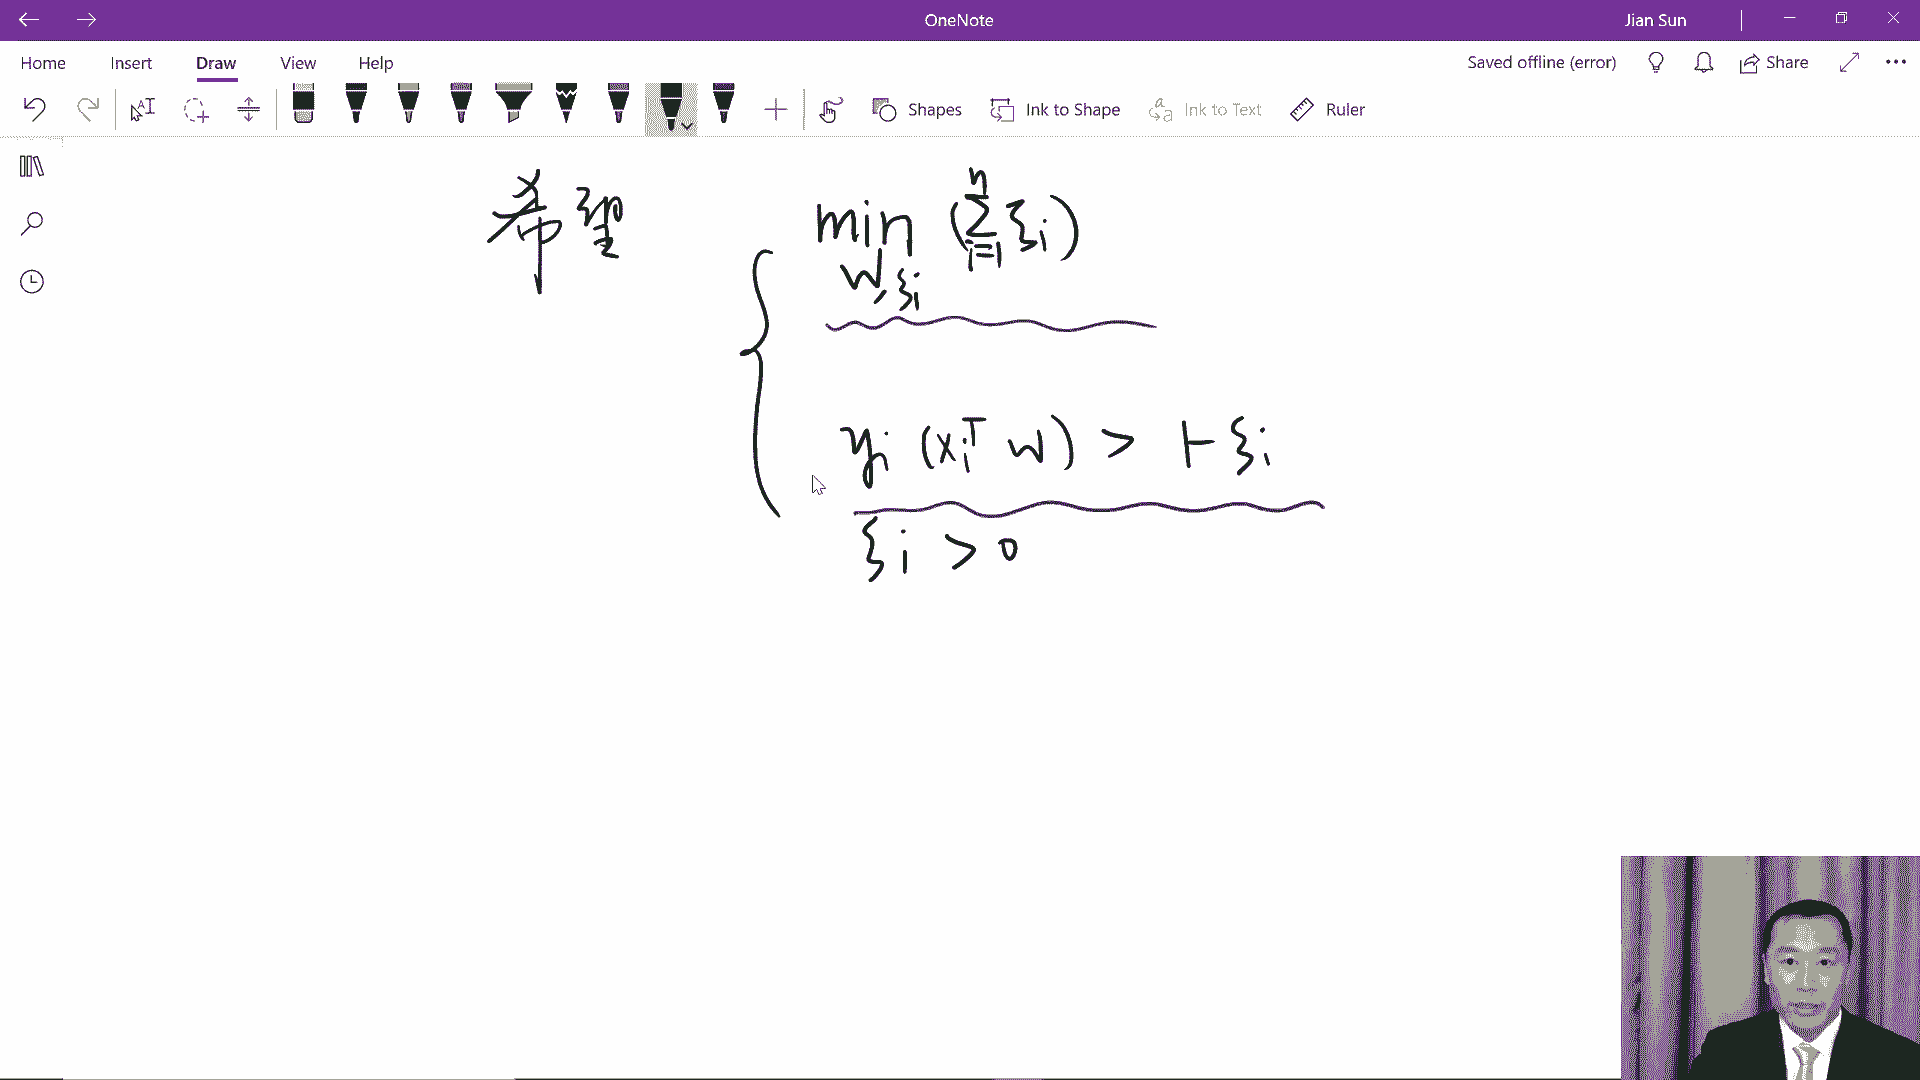 OneNote
Jian Sun
Home Insert Draw View Help
Saved offline (error)
Share
Shapes
Ink to Shape
Ink to Text
Ruler
希望
min (∑ξi)
n
i=1
w,ξi
yi (xiᵀ w) > 1-ξi
ξi > 0